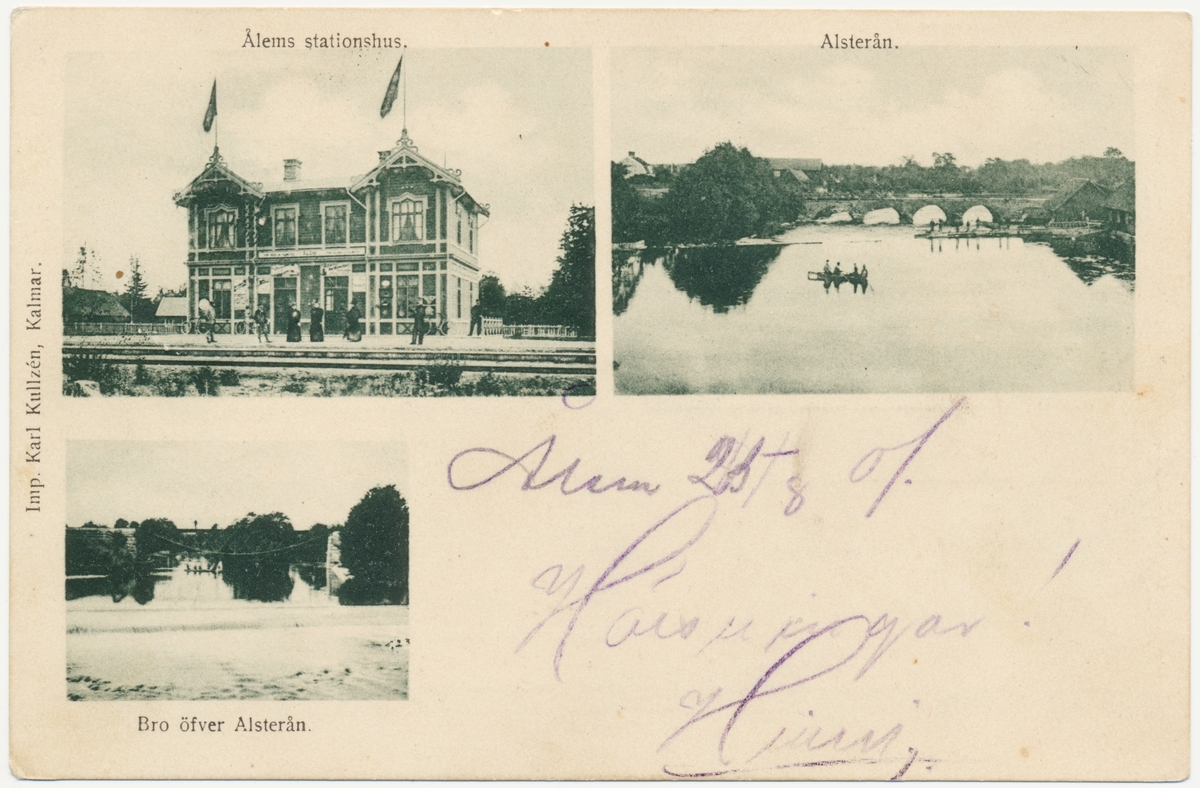 Ålems stationshus.
Alsterån.
Imp. Karl Kullzén, Kalmar.
Bro öfver Alsterån.
Ålem 25/8 01.
Hälsningar!